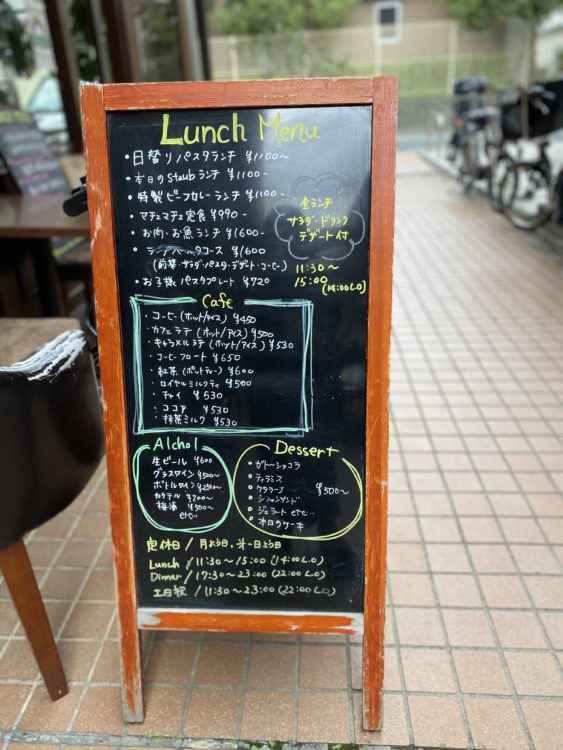 Lunch Menu
・日替りパスタランチ ¥1100〜
・本日のstaubランチ ¥1100-
・特製ビーフカレーランチ ¥1100-
・マチェマチェ定食 ¥990-
・お肉・お魚ランチ ¥1600-
パスタコース ¥1600
(前菜・サラダ・パスタ・デザート・コーヒー)
・お子様パスタプレート ¥720
全ランチ
サラダ・ドリンク
デザート付
11:30〜
15:00
(14:00L.O)
Cafe
・コーヒー(ホット/アイス) ¥450
・カフェラテ(ホット/アイス) ¥500
・キャラメルラテ(ホット/アイス) ¥530
・コーヒーフロート ¥650
・紅茶(ポットティー) ¥600
・ロイヤルミルクティ ¥500
・チャイ ¥530
・ココア ¥530
・抹茶ミルク ¥530
Alchol
生ビール ¥600
グラスワイン ¥500〜
ボトルワイン ¥2500〜
カクテル ¥700〜
梅酒 ¥500〜
etc-
Dessert
・ガトーショコラ
・ティラミス
・カタラーナ ¥500〜
・シフォンサンド
・ジェラート etc...
・本日のケーキ
定休日 / 月よう日、第一日よう日
Lunch / 11:30〜15:00 (14:00L.O)
Dinner / 17:30〜23:00 (22:00L.O)
土日祝 / 11:30〜23:00 (22:00L.O)